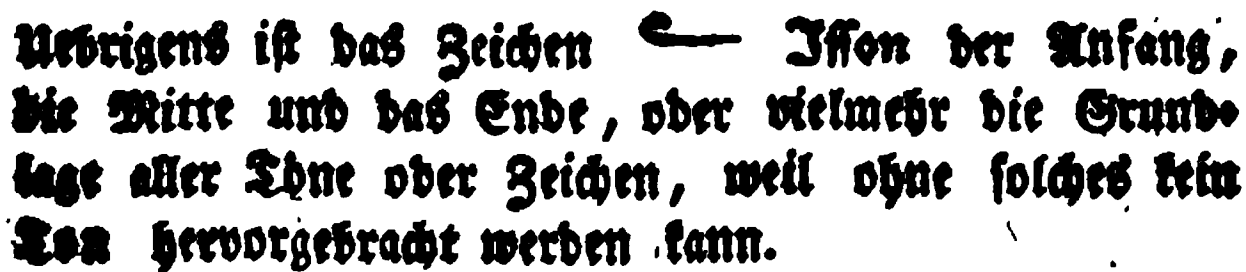 Uebrigens ist das Zeichen Isson der Anfang,
die Mitte und das Ende, oder vielmehr die Grund-
lage aller Töne oder Zeichen, weil ohne solches kein
Ton hervorgebracht werden kann.